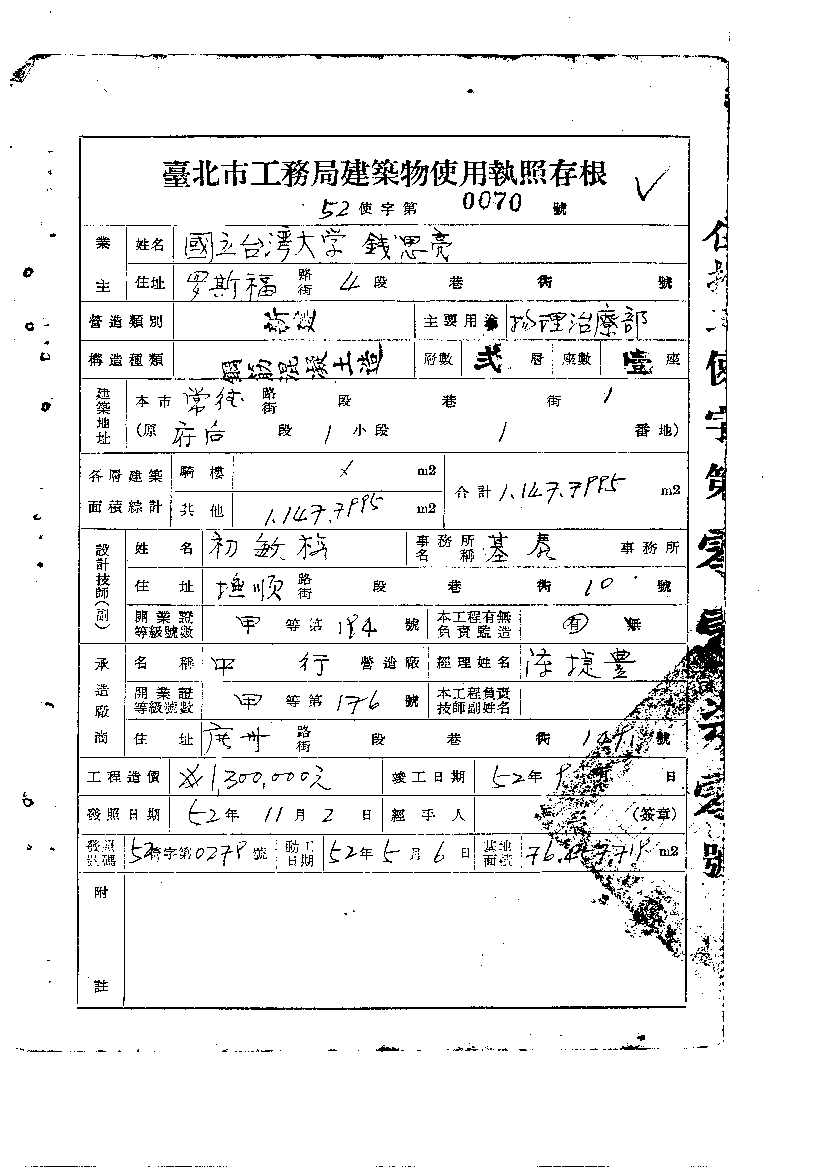 臺北市工務局建築物使用執照存根
52使字第 0070 號
業主 姓名 國立台湾大学 錢思亮
住址 罗斯福 路街 4 段 巷 街 號
營造類別 新設 主要用途 物理治療部
構造種類 鋼筋混凝土造 層數 弍 層 座數 壹 座
建築地址 本市 常德 路街 段 巷 街 1
(原 府后 段 1 小段 1 番地)
各層建築面積綜計 騎樓 m2 合計 1.147.7995 m2
其他 1.147.7995 m2
設計技師(副) 姓名 初毓梅 事務所名稱 基泰 事務所
住址 撫順 路街 段 巷 街 10 號
開業證等級號數 甲 等第 194 號 本工程有無負責監造 有 無
承造廠商 名稱 中行 營造廠 經理姓名 陈捷豊
開業證等級號數 甲 等第 176 號 本工程負責技師副姓名
住址 广州 路街 段 巷 街 號
工程造價 1,300,000元 竣工日期 52年 9 日
發照日期 52年 11月 2日 經手人 (簽章)
發照號碼 52 字第0279號 動工日期 52年5月6日 基地面積 m2
附註
使字第零 零號